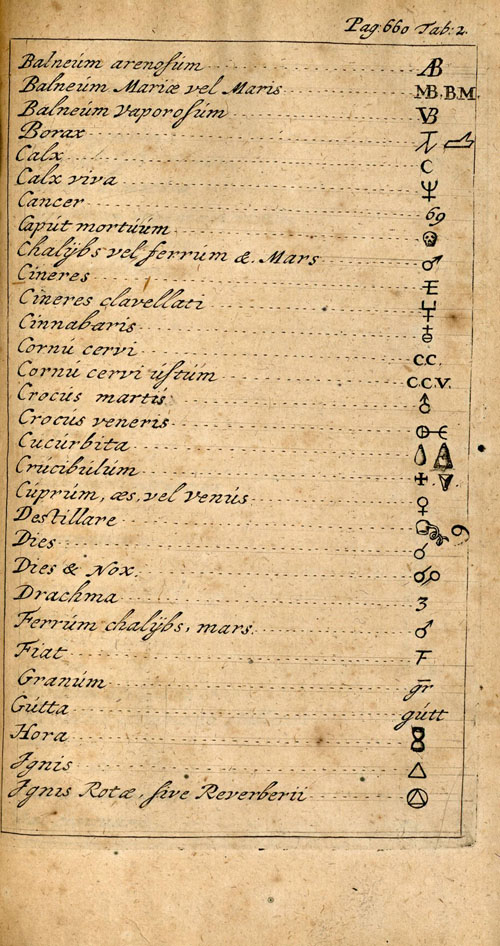 Pag: 660 Tab: 2.
Balneúm arenosúm Æ B
Balneúm Mariæ vel Maris MB. B.M.
Balneúm Vaporosúm VB
Borax
Calx
Calx viva
Cancer 69
Capút mortúúm
Chalÿbs vel ferrúm &. Mars ♂
Cineres E
Cineres clavellati
Cinnabaris
Cornú cervi C.C.
Cornú cervi ústúm C.C.V.
Crocús martis
Crocús veneris
Cucúrbita
Crúcibúlúm
Cúprúm, æs, vel venús ♀
Destillare
Dies
Dies & Nox.
Drachma ʒ
Ferrúm chalÿbs, mars. ♂
Fiat
Granúm gr
Gútta gútt
Hora
Ignis △
Ignis Rotæ, sive Reverberii